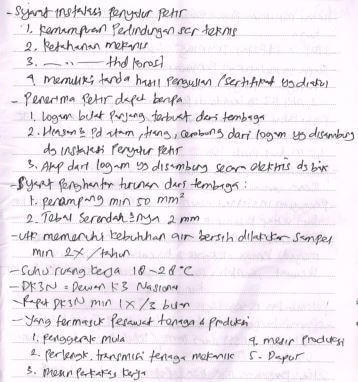 - Syarat instalasi penyalur petir
1. Kemampuan Perlindungan scr teknis
2. Ketahanan mekanis
3. —— " —— thd korosi
4 memiliki tanda hasil Pengujian / Sertifikat yg diakui
- Penerima Petir dapat berupa
1. Logam bulat panjang terbuat dari tembaga
2. Hiasan2 Pd atam, tiang, cerobong dari logam yg disambung
dg instalasi Penyalur petir
3. Atap dari logam yg disambung secara elektris dg baik
- Syarat Penghantar turunan dari tembaga :
1. penampang min 50 mm²
2. Tebal Serendah2nya 2 mm
- utk memenuhi kebutuhan air bersih dilakukan sampel
min 2x /tahun
- Suhu ruang kerja 18 - 28 °C
- DK3N = Dewan K3 Nasional
- Rapat DK3N min 1x / 3 bulan
- Yang termasuk Pesawat tenaga & produksi
1. penggerak mula
4. mesin produksi
2. perlengk. transmisi tenaga mekanik
5. Dapur
3. mesin perkakas kerja